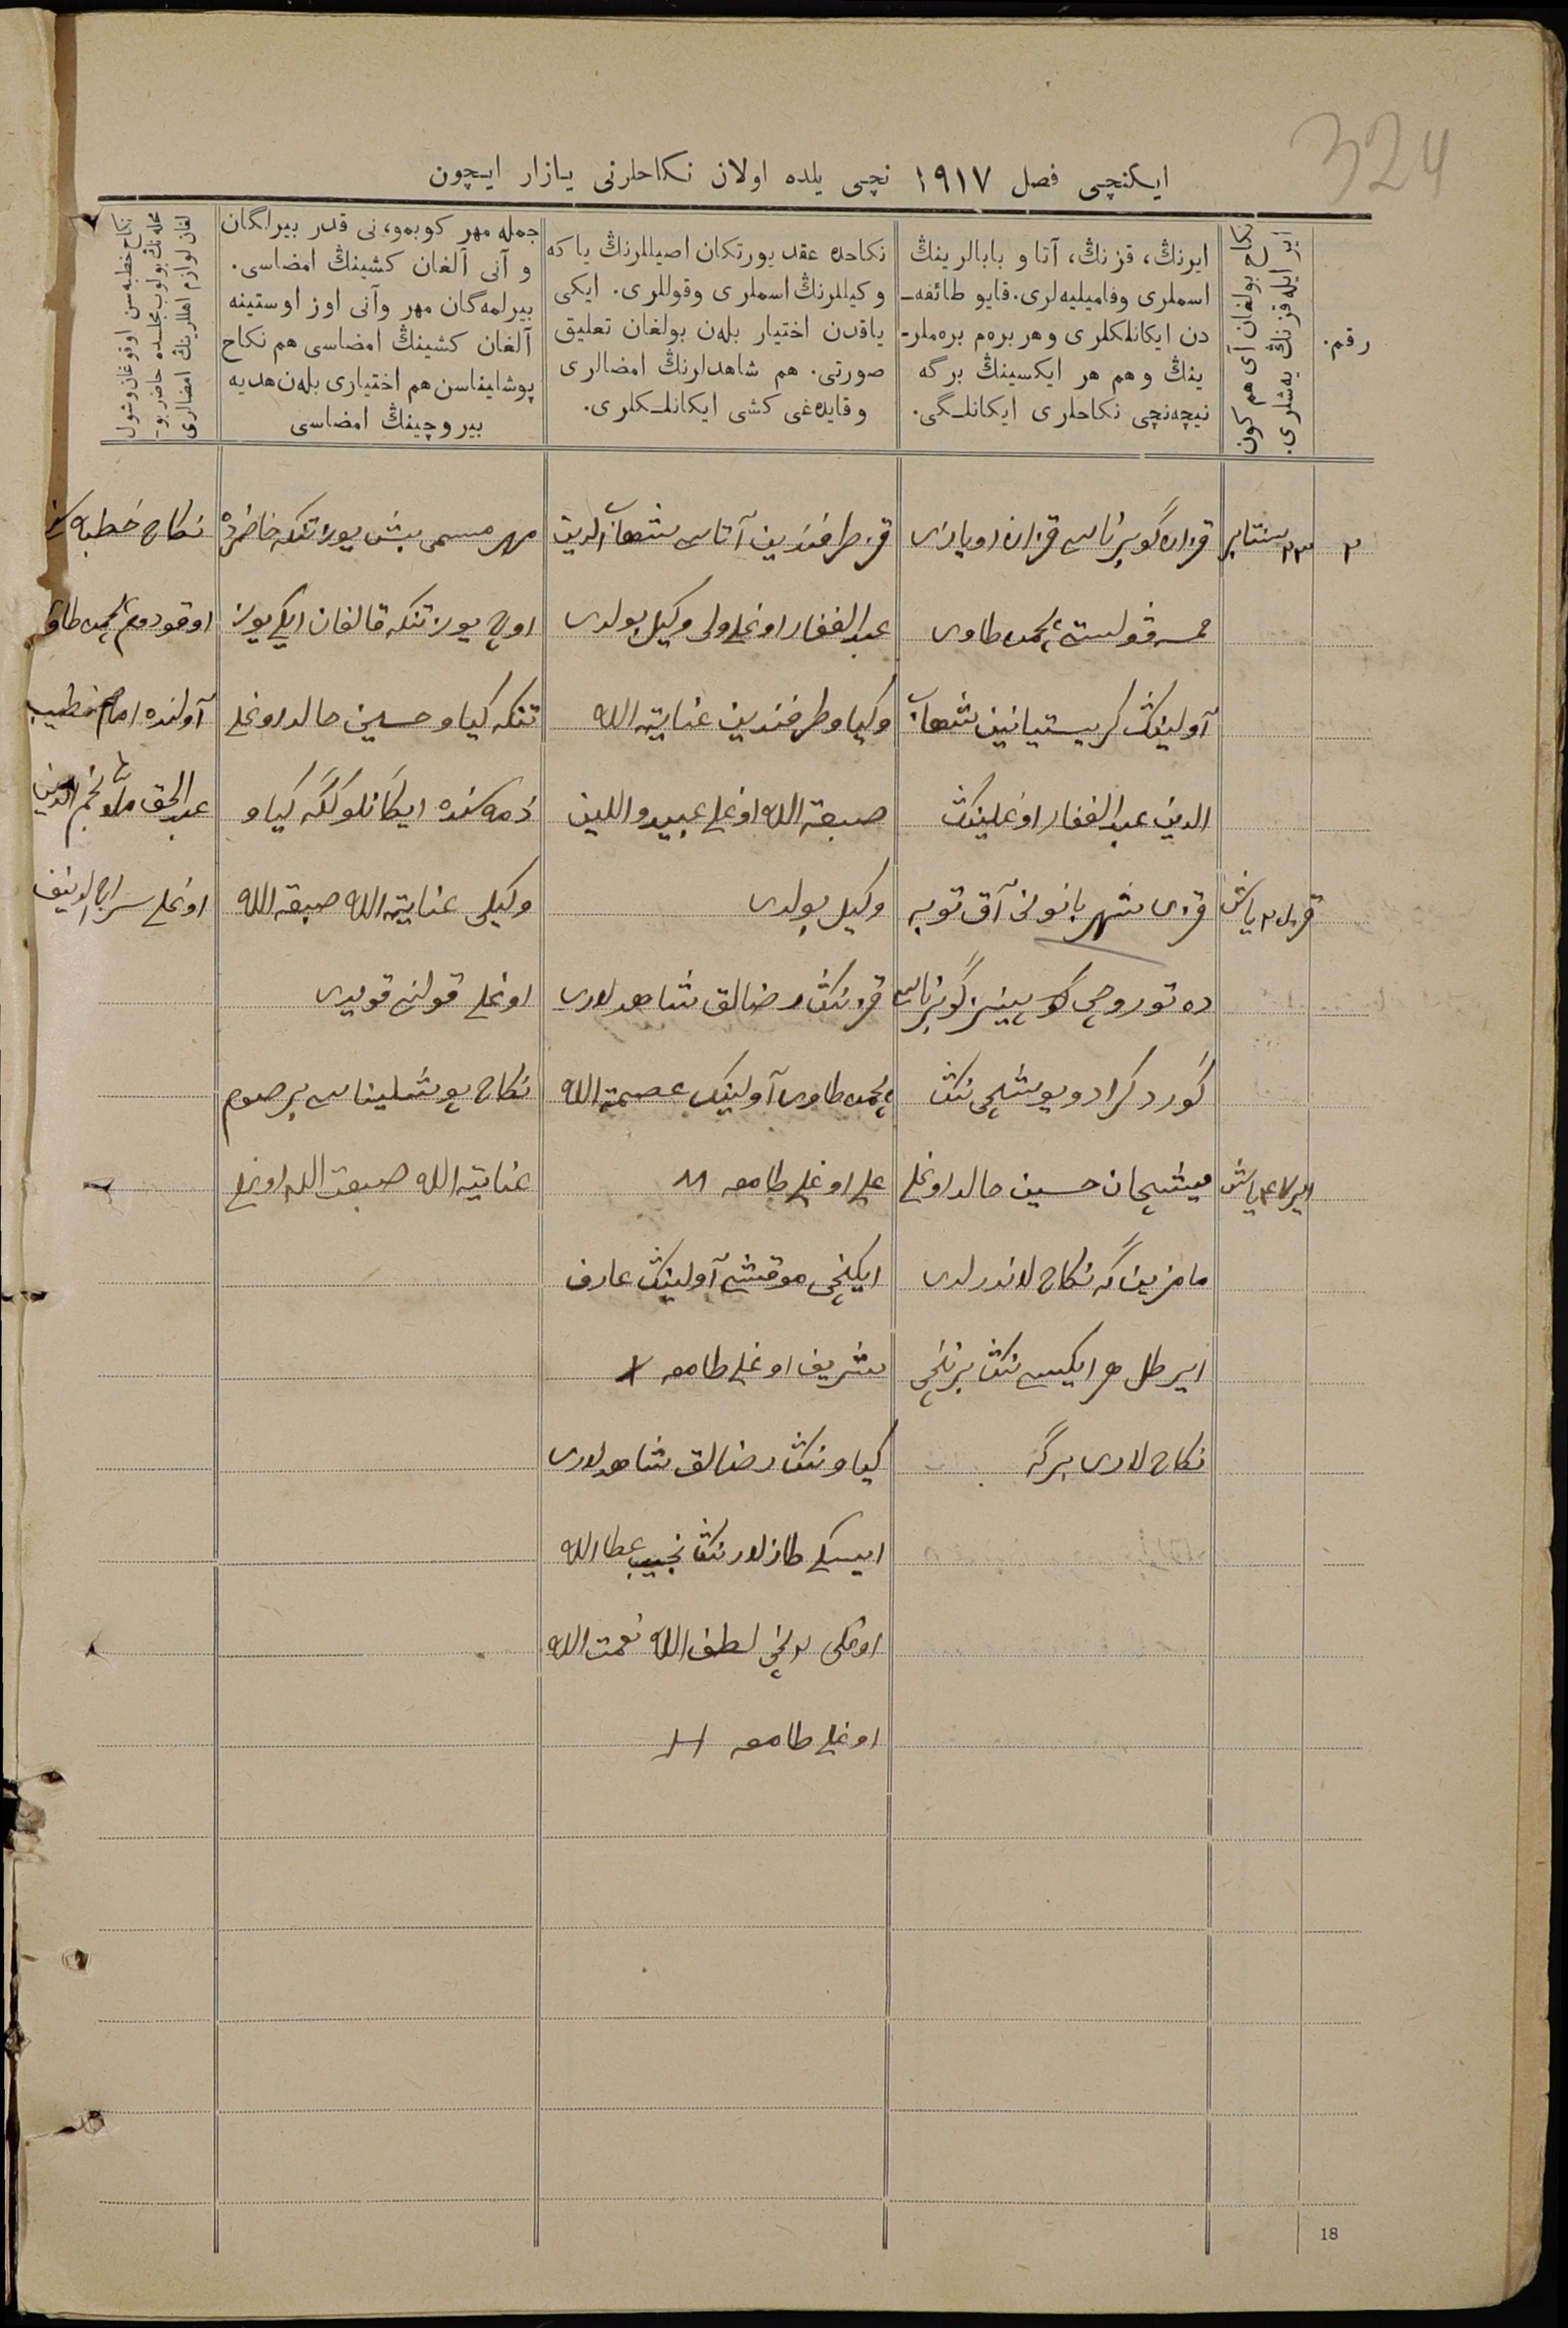 324
ایکنچی فصل ١٩١٧ نچی یلده اولان نکاحلرنی یازار ایچون
رقم.
نکاح بولغان آی هم کون
ایر ایله قزنڭ یه‌شلری.
ایرنڭ، قزنڭ، آتا و بابالرینڭ
اسملری وفامیلیه‌لری. قایو طائفه‌ـ
دن ایکانلکلری و هر بره‌م بره‌ملرـ
ینڭ و هم هر ایکسینڭ برگه
نیچه‌نچی نکاحلری ایکانلـگی.
نکاحده عقد یورتکان اصیللرنڭ یا که
وکیللرنڭ اسملری وقوللری. ایکی
یاقدن اختیار بله‌ن بولغان تعلیق
صورتی. هم شاهدلرنڭ امضالری
و قایده‌غی کشی ایکانلـکلری.
جمله مهر کوبمو، نی قدر بیرلگان
و آنی آلغان کشینڭ امضاسی.
بیرلمه‌گان مهر وآنی اوز اوستینه
آلغان کشینڭ امضاسی هم نکاح
پوشلیناسن هم اختیاری بله‌ن هدیه
بیروچینڭ امضاسی
نکاح خطبه‌سن اوقوغان وشول
محله‌نڭ بولوب مجلسده حاضر بوـ
لغان لوازم اهللرینڭ امضالری
٢
٢٣ سنتابر
قزان گوبرناسی قزان اویازی
قز طرفندین آتاسی شهاب الدین
مهر مسمی بیش یوز تنکه حاضرده
نکاح خطبه‌سن
ولستی محمد طاوی
عبدالغفار اوغلی ولی وکیل بولدی
اوچ یوز تنکه قالغان ایکی یوز
اوقودم محمد طاوی
آولینڭ کریستیانین شهاب
وکیاو طرفندین عنایة الله
تنکه کیاو حسین خالد اوغلی
آولنده امام خطیب
الدین عبدالغفار اوغلینڭ
صبغة الله اوغلی عبیدواللین
ذمه‌سنده ایکانلوککه کیاو
عبدالحق ملا نجم الدین
قزل ٢ یاش
قزی شهربانونی آق توبه
وکیل بولدی
وکیلی عنایة الله صبغة الله
اوغلی سراج الدینف
ده توروچی پینیز گوبرناسی
قزنڭ رضالق شاهدلاری
اوغلی قولن قویدی
محمد طاوی آولینڭ عصمة الله
نکاح پوشلیناسی بر صوم
میشچان حسین خالد اوغلی
علی اوغلی طامغه M
عنایة الله صبغة الله اوغلی
مامزین گه نکاح لاندرلدی
ایکنچی موقشی آولینڭ عارف
هر ایکیسی نڭ برنچی
شریف اوغلی طامغه X
نکاح لاری برگه
کیاونڭ رضالق شاهدلاری
ایسکی طازلارنڭ نجیب عطاالله
لطف الله نعمت الله
اوغلی طامغه H
18